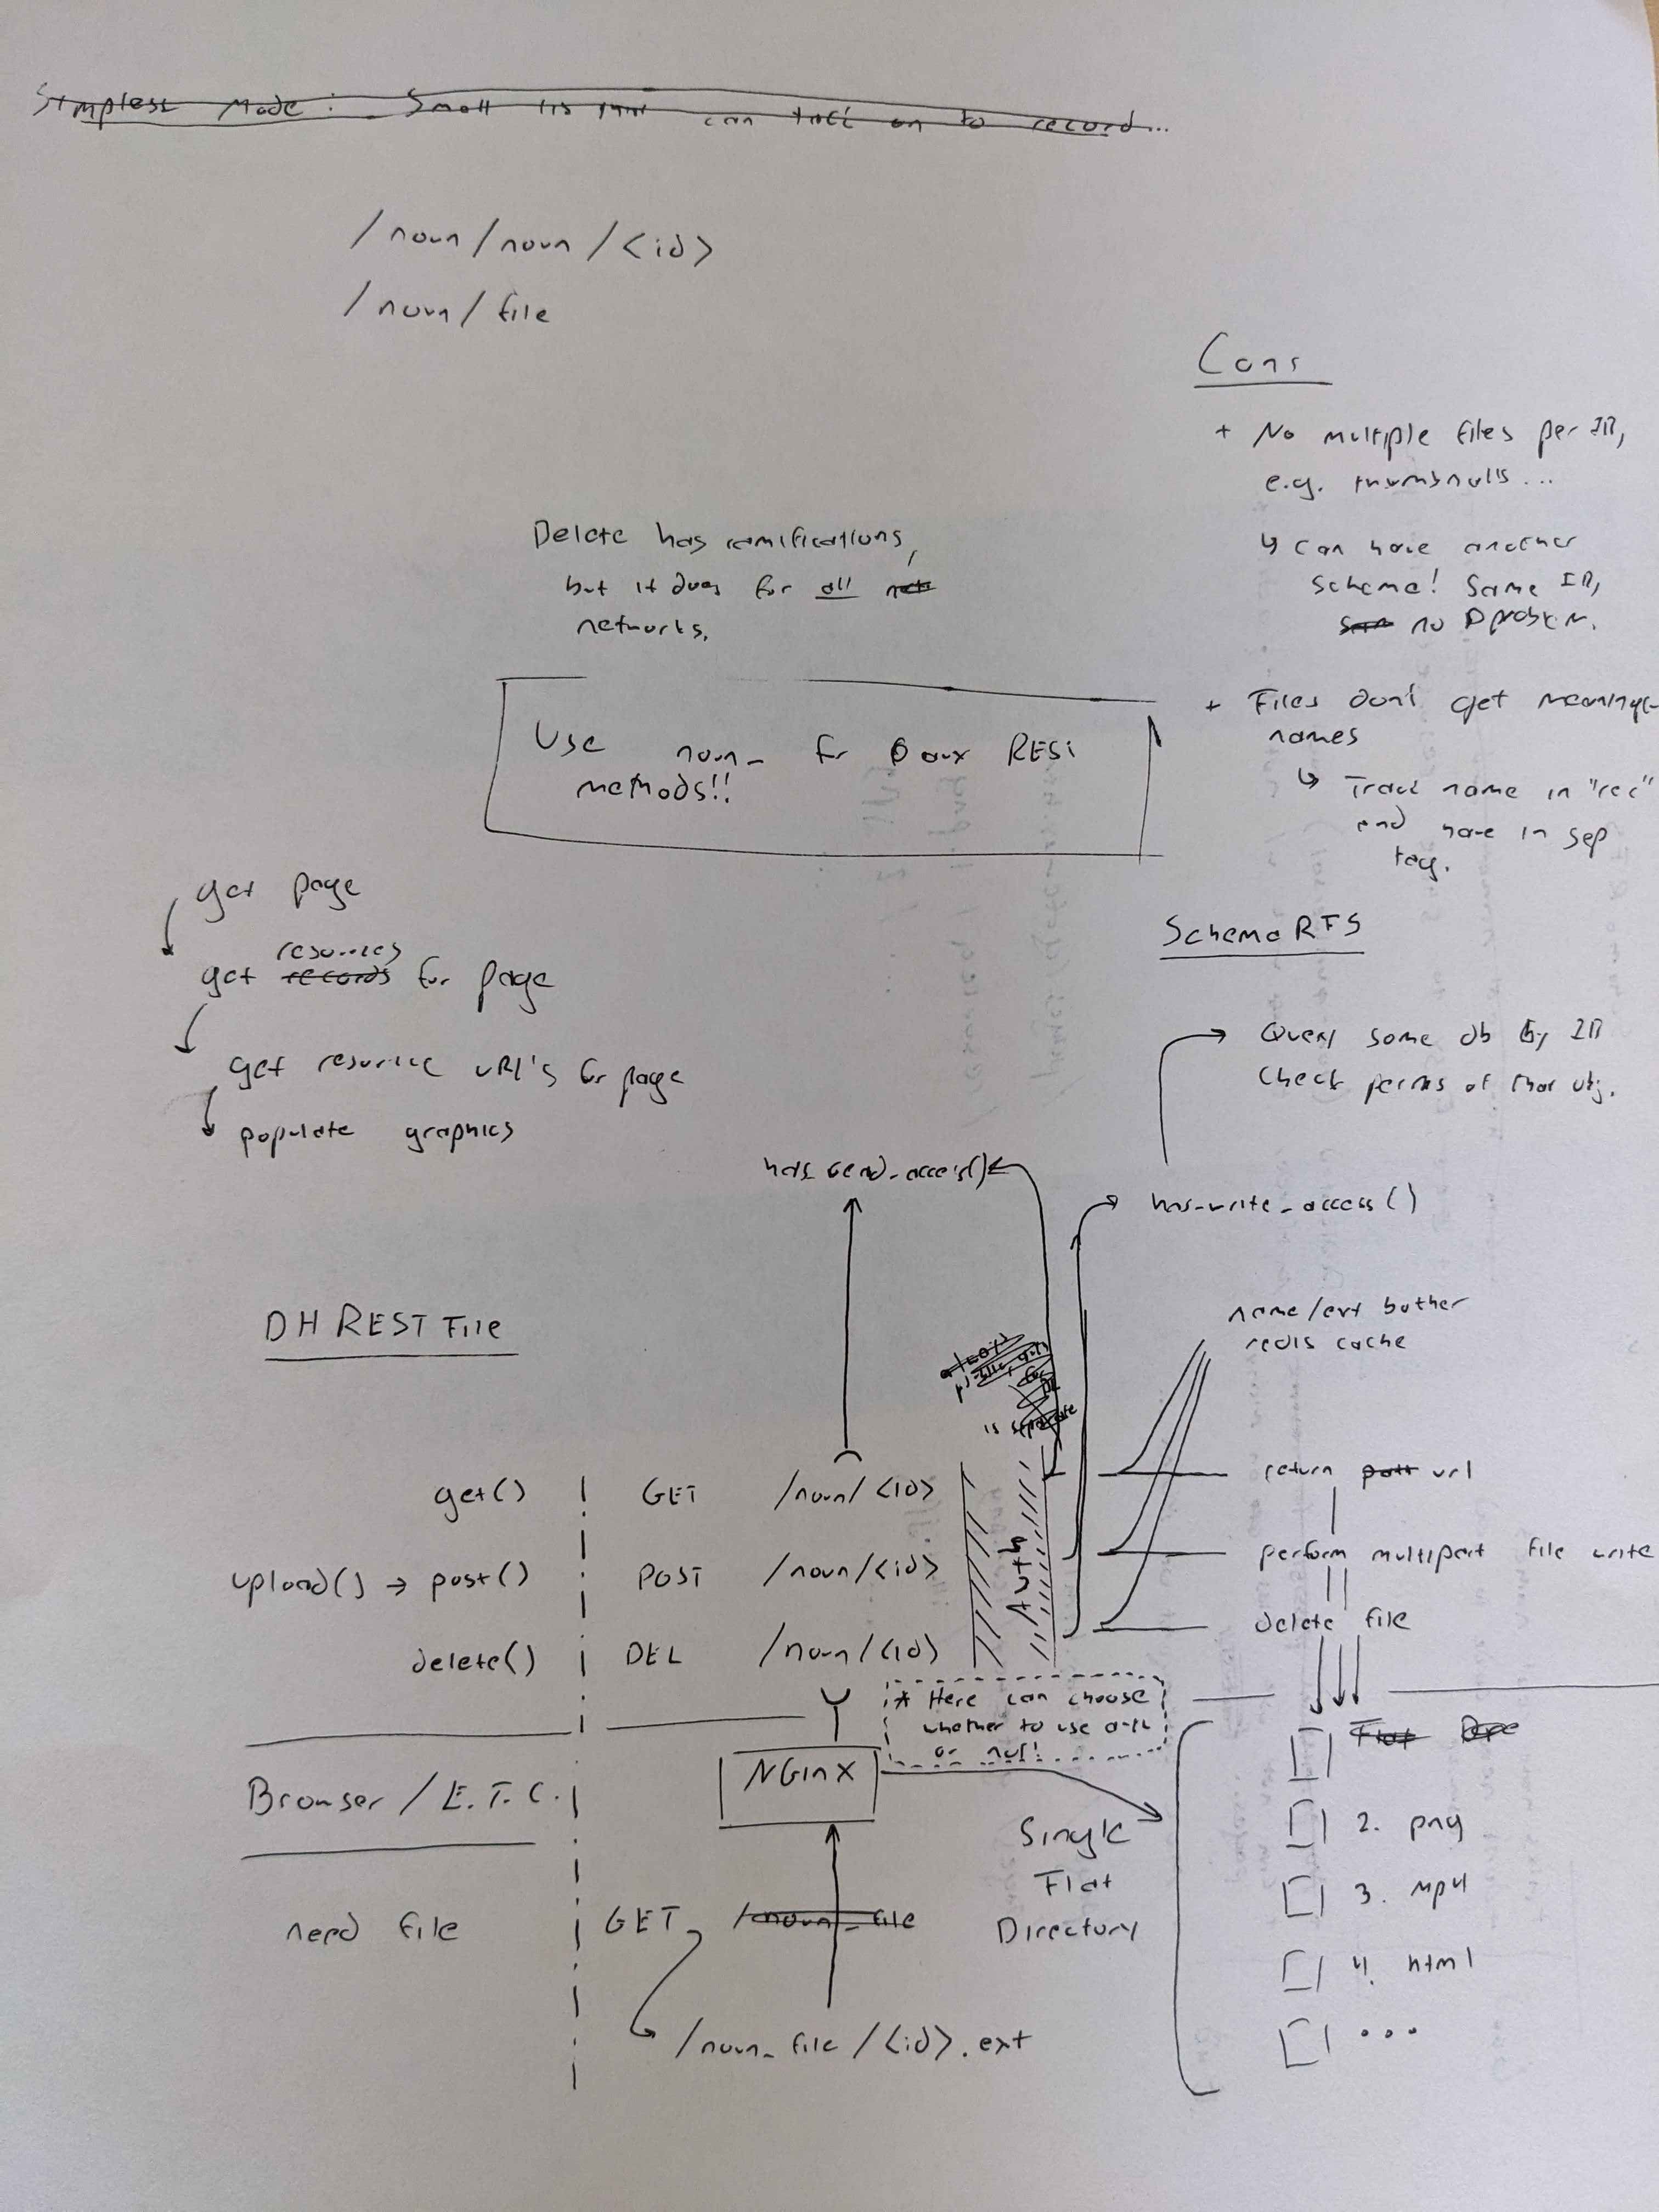 Simplest Mode: Small can on to record...
/noun/noun/<id>
/noun/file
Cons
+ No multiple files per ID,
e.g. thumbnails...
↳ can have another
scheme! Same ID,
no problem.
+ Files don't get
names
↳ Track name in "rec"
and have in sep
tag.
Delete has ramifications,
but it does for all
networks.
Use noun_ for aux REST
methods!!
get page
get records resources for page
get resource URL's for page
populate graphics
SchemaRFS
Query some db by ID
Check perms of that obj.
has_read_access()
has_write_access()
DH REST File
name/ext
redis cache
is separate
get() GET /noun/<id>
upload() → post() POST /noun/<id>
delete() DEL /noun/<id>
Auth
return path url
perform multipart file write
delete file
* Here can choose
whether to use auth
or not!
NGinX
Browser / E.T.C.
Single
Flat
Directory
Flat
2. png
3. mp4
4. html
...
need file
GET /noun_file
/noun_file/<id>.ext